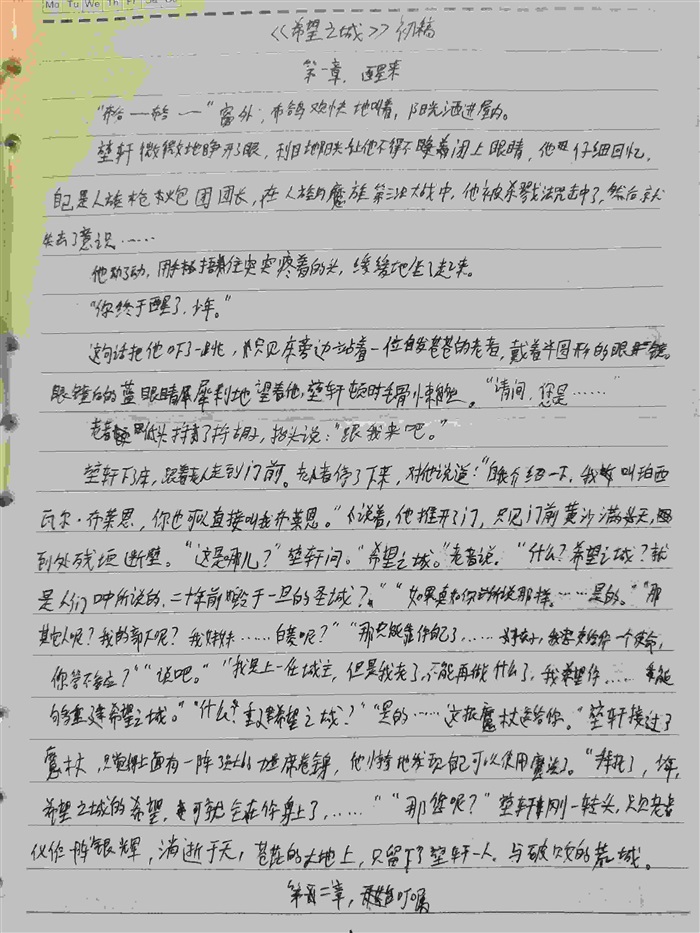 Mo Tu We Th Fr Sa Su
《希望之城》初稿
第一章，醒来
“布谷——布谷——”窗外，布鸽欢快地叫着，阳光洒进屋内。
堃轩微微地睁开了眼，刺目地阳光让他不得不闭上眼睛，他仔细回忆，
自己是人族枪炮团团长，在人族与魔族第三次大战中，他被杀戮法咒击中了，然后就
失去了意识……
他动了动，用手捂住突突疼着的头，缓缓地坐了起来。
“你终于醒了，少年。”
这句话把他吓了一跳，只见床旁边站着一位白发苍苍的老者，戴着半图形的眼镜，
眼镜后的蓝眼睛犀利地望着他，堃轩顿时毛骨悚然。“请问，您是……”
老者低头捋了捋胡子，抬头说：“跟我来吧。”
堃轩下了床，跟着老人走到门前。老者停了下来，对他说道：“自我介绍一下，我叫珀西
瓦尔·布莱恩，你也可以直接叫我布莱恩。”说着，他推开了门，只见门前黄沙满天，
到处残垣断壁。“这是哪儿？”堃轩问。“希望之城。”老者说。“什么？希望之城？就
是人们口中所说的，二十年前毁于一旦的圣城？”“如果真如你所说那样……是的。”“那
其他人呢？我的部下呢？我妹妹……白菱呢？”“那只能靠你自己了……对了，我要交给你一个使命，
你答不答应？”“说吧。”“我是上一任城主，但是我老了，不能再做什么了，我希望你……能
够重建希望之城。”“什么？重建希望之城？”“是的……这根魔杖送给你。”堃轩接过了
魔杖，只觉得上面有一阵强大的力量席卷全身，他惊奇地发现自己可以使用魔法了。“拜托了，少年，
希望之城的希望，可就全在你身上了，……”“那您呢？”堃轩刚一转头，只见老者
化作一阵银辉，消逝于天，苍茫的大地上，只留下了堃轩一人，与破败的荒城。
第二章，叮嘱